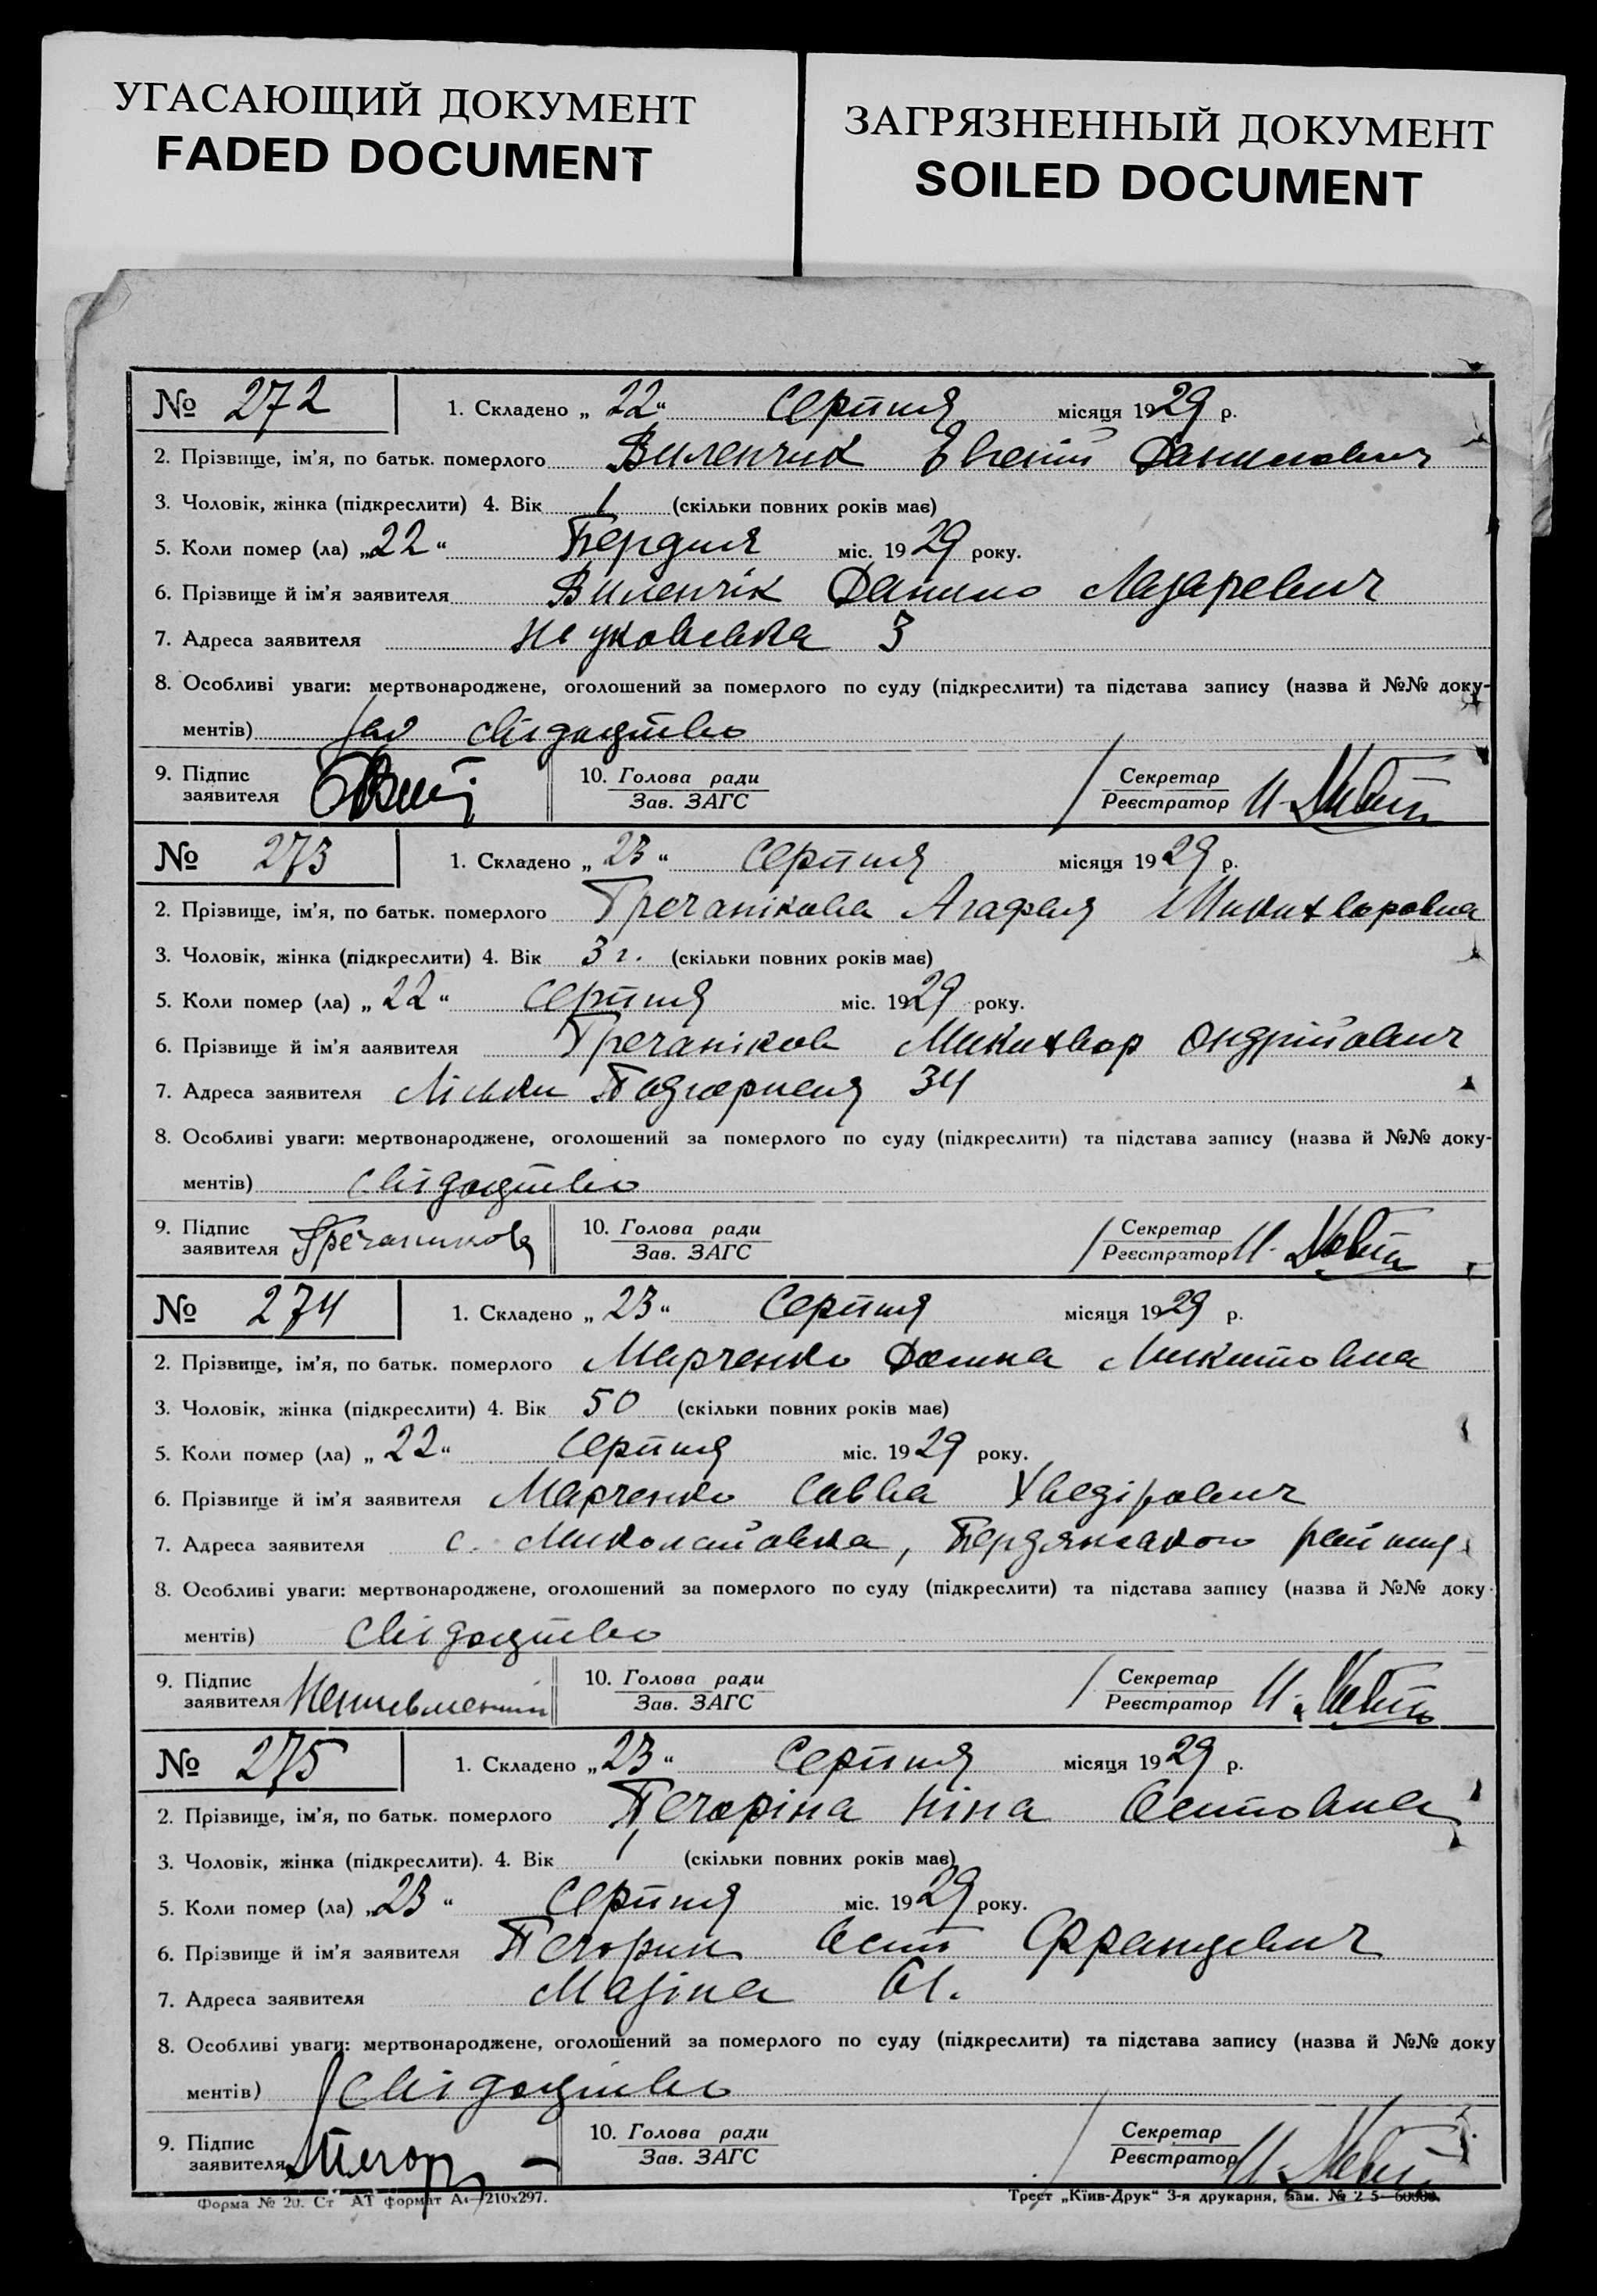 УГАСАЮЩИЙ ДОКУМЕНТ
FADED DOCUMENT
ЗАГРЯЗНЕННЫЙ ДОКУМЕНТ
SOILED DOCUMENT
№ 272 1. Складено „ 22 “ Серпня місяця 1929 р.
2. Прізвище, ім’я, по батьк. померлого Виленчик Евгеній Данилович
3. Чоловік, жінка (підкреслити) 4. Вік 1 (скільки повних років має)
5. Коли помер (ла) „22“ міс. 1929 року.
6. Прізвище й ім’я заявителя Виленчік Данило Лазаревич
7. Адреса заявителя 3
8. Особливі уваги: мертвонароджене, оголошений за померлого по суду (підкреслити) та підстава запису (назва й №№ доку-
ментів) свідоцтво
9. Підпис заявителя 10. Голова ради Зав. ЗАГС Секретар Реєстратор
№ 273 1. Складено „ 23 “ Серпня місяця 1929 р.
2. Прізвище, ім’я, по батьк. померлого Гречанікова Агафія Микихворовна
3. Чоловік, жінка (підкреслити) 4. Вік 3 г. (скільки повних років має)
5. Коли помер (ла) „ 22 “ Серпня міс. 1929 року.
6. Прізвище й ім’я ааявителя Гречаніков Микихвор Ондрійович
7. Адреса заявителя Ліски 34
8. Особливі уваги: мертвонароджене, оголошений за померлого по суду (підкреслити) та підстава запису (назва й №№ доку-
ментів) свідоцтво
9. Підпис заявителя Гречаникова 10. Голова ради Зав. ЗАГС Секретар Реєстратор
№ 274 1. Складено „ 23 “ Серпня місяця 1929 р.
2. Прізвище, ім’я, по батьк. померлого Марченко Микитовна
3. Чоловік, жінка (підкреслити) 4. Вік 50 (скільки повних років має)
5. Коли помер (ла) „ 22 “ Серпня міс. 1929 року.
6. Прізвище й ім’я заявителя Марченко Савва Хведірович
7. Адреса заявителя с. Миколаївка, Бердянського
8. Особливі уваги: мертвонароджене, оголошений за померлого по суду (підкреслити) та підстава запису (назва й №№ доку
ментів) свідоцтво
9. Підпис заявителя 10. Голова ради Зав. ЗАГС Секретар Реєстратор
№ 275 1. Складено „ 23 “ Серпня місяця 1929 р.
2. Прізвище, ім’я, по батьк. померлого Печоріна Ніна
3. Чоловік, жінка (підкреслити). 4. Вік 1 (скільки повних років має)
5. Коли помер (ла) „23 “ Серпня міс. 1929 року.
6. Прізвище й ім’я заявителя Печорин Францевич
7. Адреса заявителя Мазіна 61.
8. Особливі уваги: мертвонароджене, оголошений за померлого по суду (підкреслити) та підстава запису (назва й №№ доку
ментів) свідоцтво
9. Підпис заявителя 10. Голова ради Зав. ЗАГС Секретар Реєстратор
Форма № 20. Ст АТ формат А4—210х297. Трест „Київ-Друк“ 3-я друкарня,